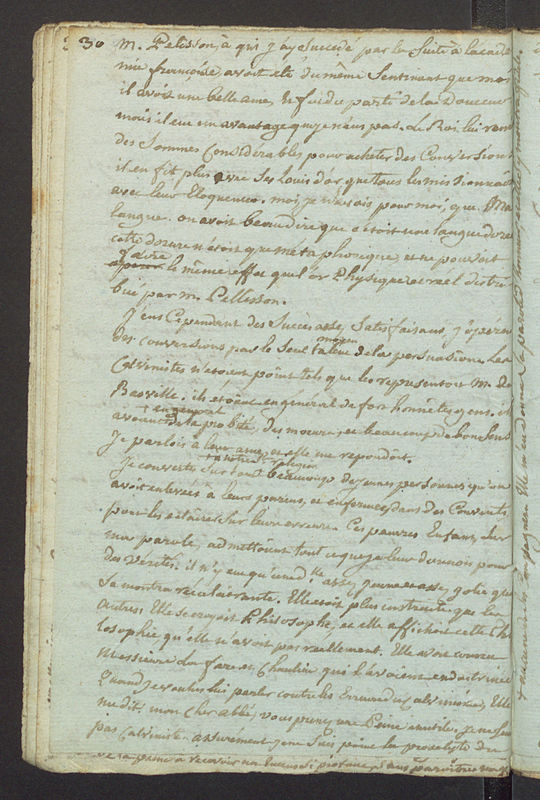 30 M. Pelisson, à qui j'ay succedé par la Suite à lacadé
mie francoise, avoit été du même Sentiment que moi
il avoit une belle ame, il fut du parti de la Douceur
mais il eut un avantage que je n'eus pas. Le Roi lui remit
des Sommes Considérables pour acheter des Conversions
il en fit plus avec Ses Louis d'or que tous les missionnaires
avec leur Eloquence. moi, je n'avois pour moi, que Ma
langue. on avoit beau dire que c'étoit une langue dorée
cette dorure n'étoit que métaphorique, et ne pouvoit
faire
le même effet que l'or Physique et réel distri
bué par M. Pellisson.
J'eus Cependant des Succès assez Satisfaisans j'opérai
moyen
des conversions par le Seul talent de la persuasion. Les
Calvinistes n'étoient point tels que les representoit M. De
Basville; ils étoient en général de fort honnêtes gens, et
en general
avoient de la probité, des moeurs, et beaucoup de bon Sens
Je parlois à leur ame, et elle me repondoit.
à notre religion
Je convertis, Sur tout beaucoup de jeunes personnes qu'on
avoit enlevées à leurs parens, et enfermées dans des Couvents
pour les éclairer Sur leurs erreurs. Ces pauvres Enfans, sur
ma parole, admettoient tout ce que je leur donnois pour
des vérités. il n'y eut qu'une dlle assez jeune et assez jolie qui
Se montra récalcitrante. Elle étoit plus instruite que les
autres. Elle Se croyoit Philosophe, et elle affichoit cette Phi
losophie, qu'elle n'avoit pas reellement. Elle avoit connu
Messieurs La fare et Chaulieu qui l'avoient endoctrinée
Quand je voulus lui parler contre les Erreurs du Calvinisme, Elle
me dit; mon Cher abbé, vous prenez une Peine inutile. je ne suis
pas Calviniste. assurément je ne Suis point la proselyte de